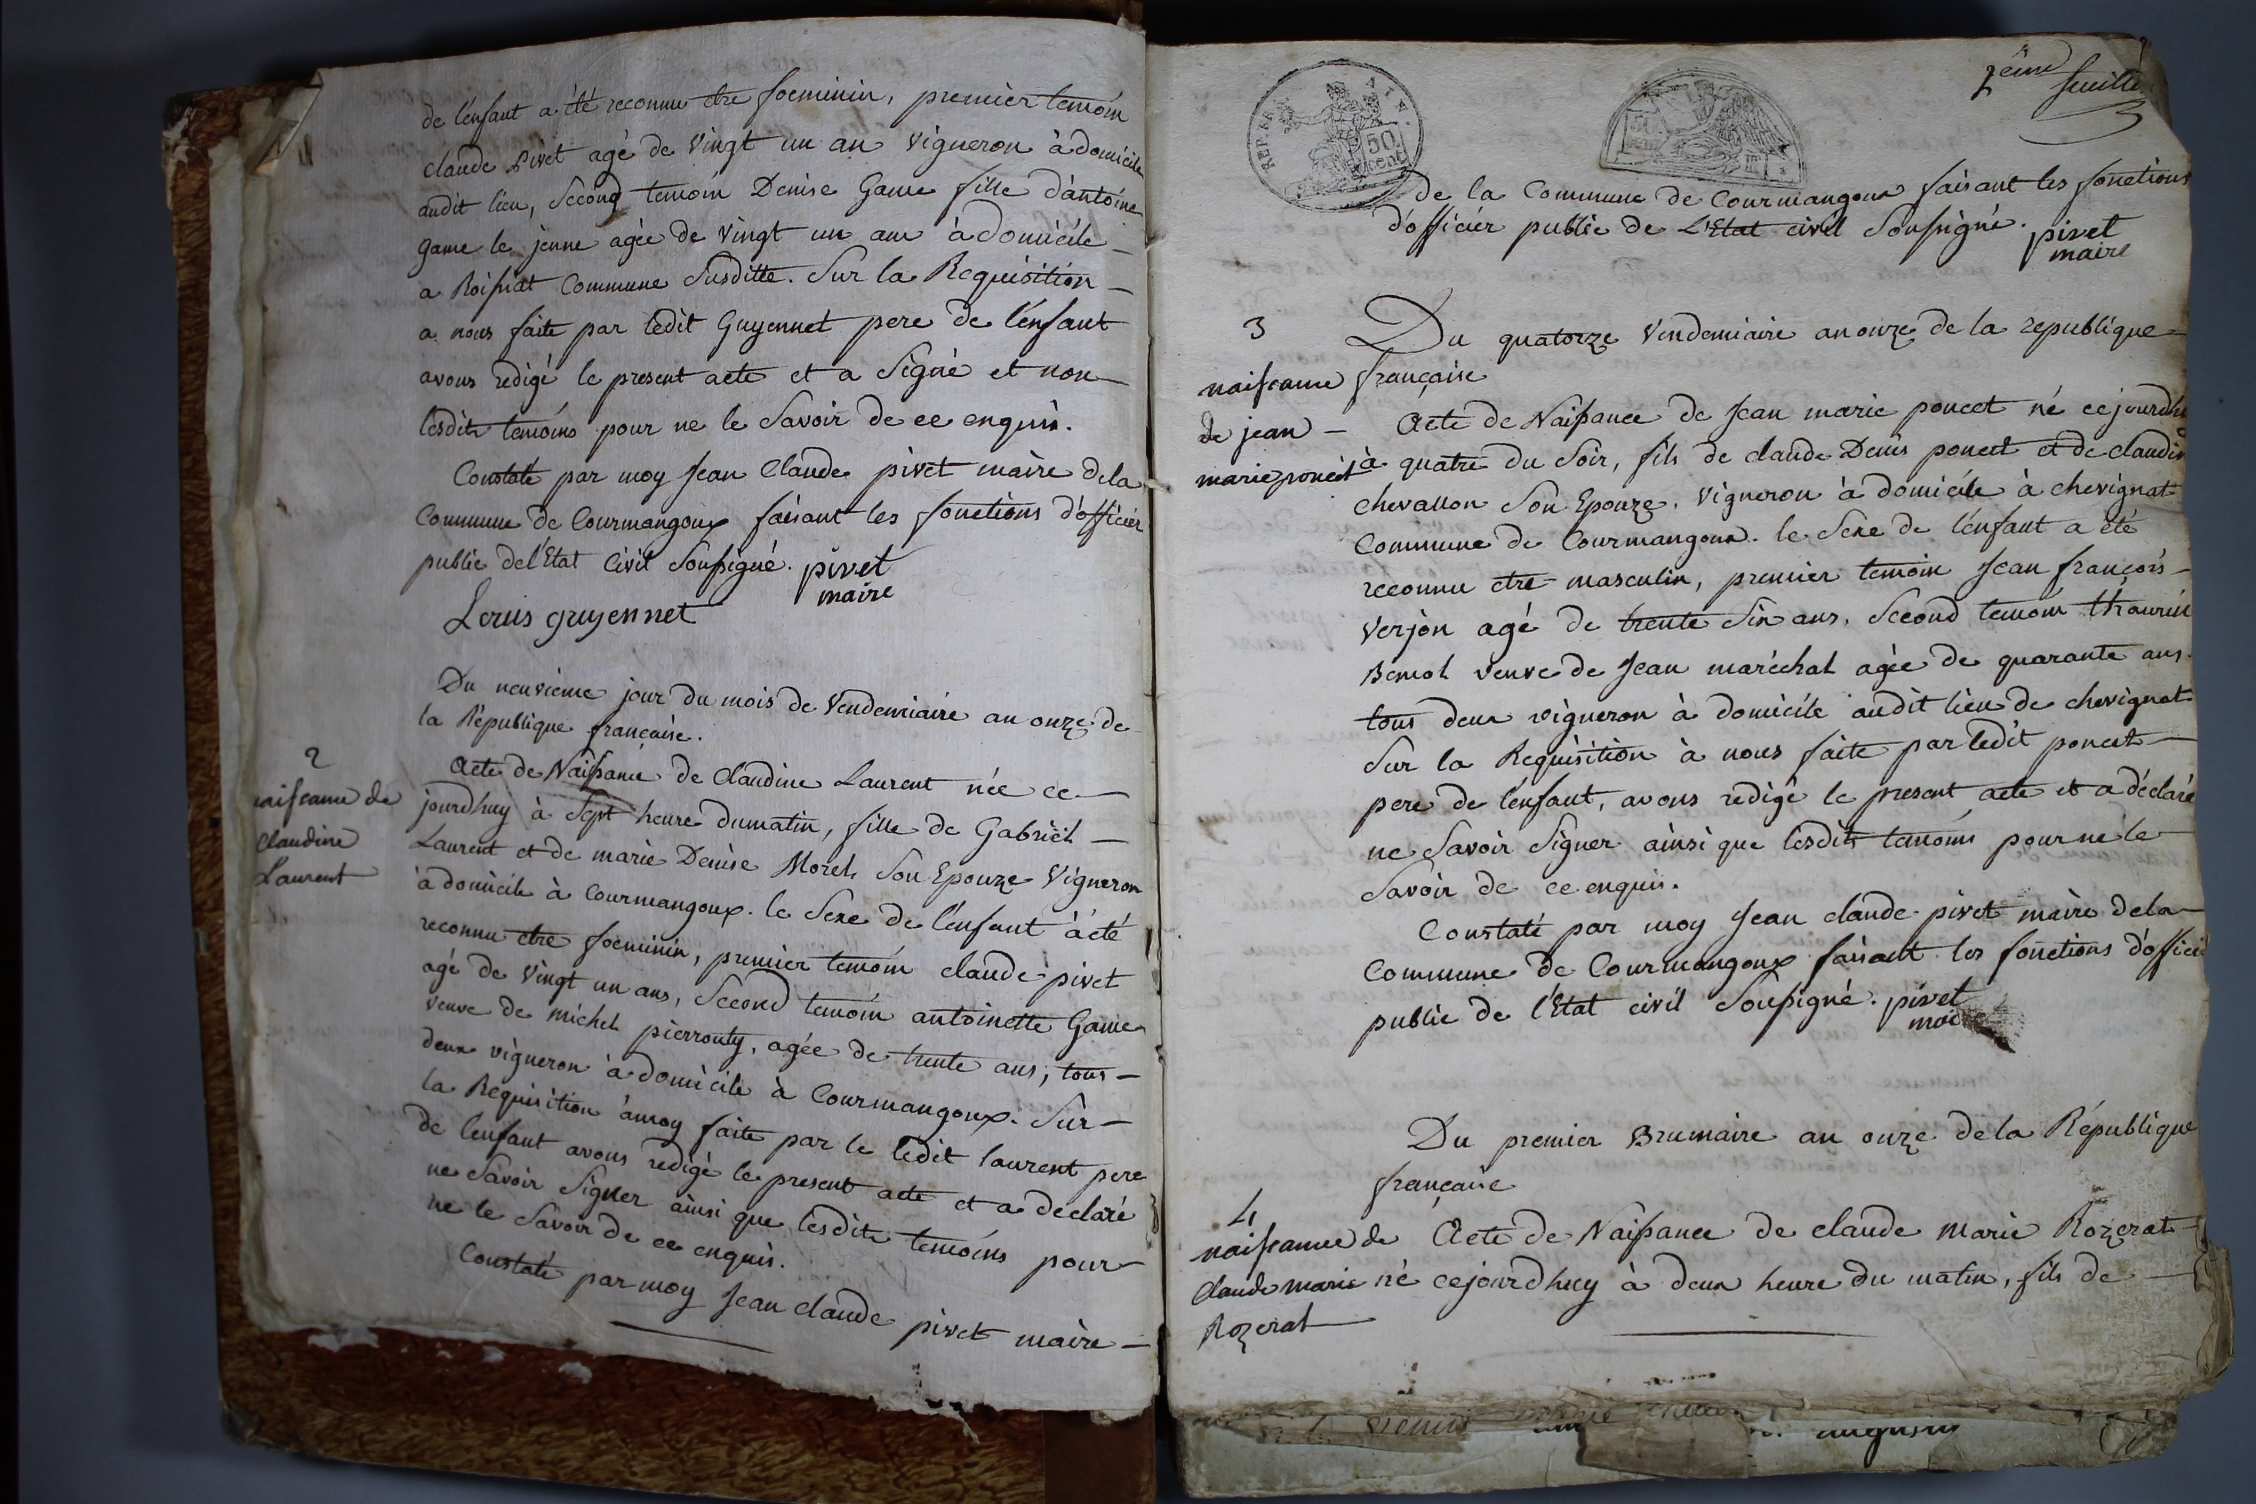 de l'enfant a été reconnu etre foeminin, premier temoin
claude pivet agé de vingt un an vigneron à domicile
audit lieu, second temoin Denise Game fille d'antoine
game le jeune agée de vingt un an à domicile
a Roissiat Commune Susditte. Sur la Requisition
a nous faite par ledit Guyennet pere de l'enfant
avons redigé le present acte et a Signé et non
lesdits temoins pour ne le Savoir de ce enquis.
Constaté par moy Jean Claude pivet maire de la
Commune de Courmangoux faisant les fonctions d'officier
public de l'Etat Civil Soussigné. pivet
maire
Louis guyennet
Du neuvieme jour du mois de Vendemiaire an onze de
la République française.
2
naissance de
Claudine
Laurent
Acte de Naissance de Claudine Laurent née ce
jourdhuy à Sept heure du matin, fille de Gabriel
Laurent et de marie Denise Morel Son Epouze vigneron
à domicile à Courmangoux. le Sexe de l'enfant à été
reconnu etre foeminin, premier temoin claude pivet
agé de vingt un ans, Second temoin antoinette Game
veuve de michel pierrouty, agée de trente ans, tous
deux vigneron à domicile à Courmangoux. Sur
la Requisition à moy faite par le ledit laurent pere
de l'enfant avons redigé le present acte et a declaré
ne Savoir Signer ainsi que lesdits temoins pour
ne le Savoir de ce enquis.
Constaté par moy Jean claude pivet maire
2ème feuillet
REP. FRA
50
cent
de la Commune de Courmangoux faisant les fonctions
d'officier public de L'Etat civil Soussigné. pivet
maire
3
naissance
de jean
marie poncet
Du quatorze Vendemiaire an onze de la republique
française
Acte de Naissance de Jean marie poncet né cejourdhuy
à quatre du Soir, fils de claude Denis poncet et de claudine
chevallon Son Epouze. vigneron à domicile à chevignat
Commune de Courmangoux. le Sexe de l'enfant a été
reconnu etre masculin, premier temoin Jean françois
Verjon agé de trente Six ans, Second temoin
veuve de Jean maréchal agée de quarante ans.
tous deux vigneron à domicile audit lieu de chevignat
Sur la Requisition à nous faite par ledit poncet
pere de l'enfant, avons redigé le present acte et a déclaré
ne Savoir Signer ainsi que lesdits temoins pour ne le
Savoir de ce enquis.
Constaté par moy Jean claude pivet maire de la
Commune de Courmangoux faisant les fonctions d'officier
public de l'Etat civil Soussigné. pivet
maire
Du premier Brumaire an onze de la République
française
4
naissance de
Claude marie
Rozerat
Acte de Naissance de claude Marie Rozerat
né cejourdhuy à deux heure du matin, fils de